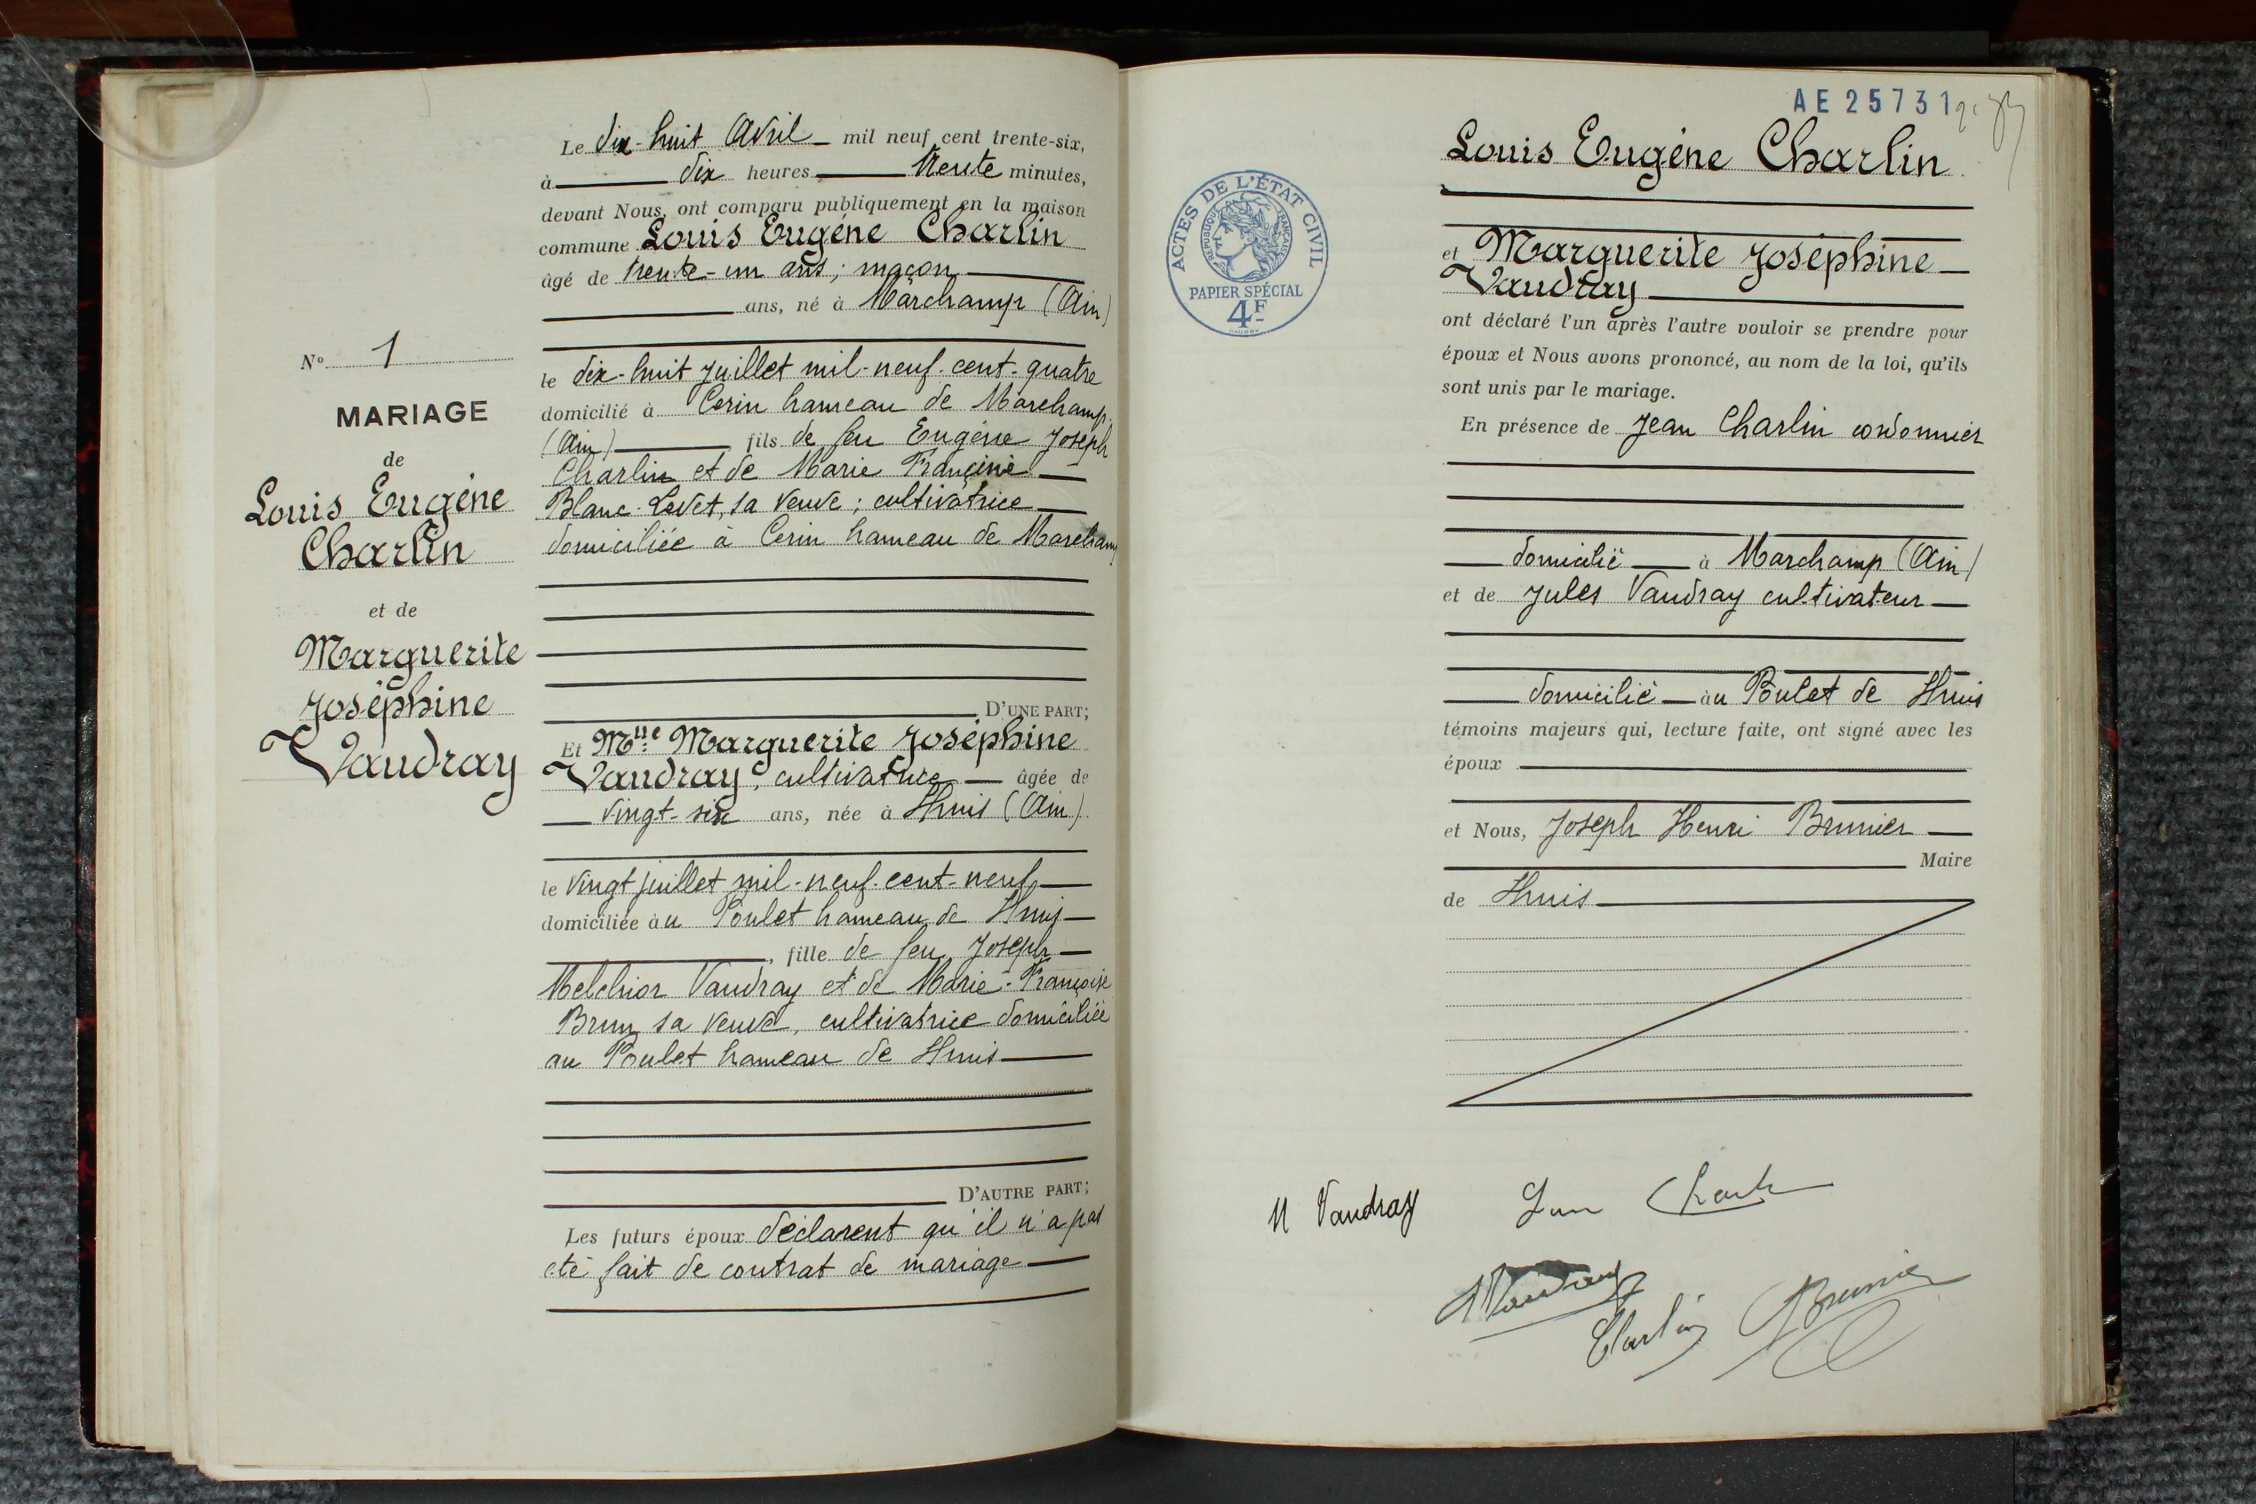 N° 1
MARIAGE
de
Louis Eugéne
Charlin
et de
Marguerite
Joséphine
Vaudray
Le dix-huit Avril mil neuf cent trente-six,
à dix heures trente minutes,
devant Nous, ont comparu publiquement en la maison
commune Louis Eugéne Charlin
âgé de trente-un ans; maçon
ans, né à Marchamp (Ain)
le dix-huit juillet mil-neuf-cent-quatre
domicilié à Cerin hameau de Marchamp
(Ain) fils de feu Eugéne Joseph
Charlin et de Marie Françine
Blanc-Levet, sa veuve; cultivatrice
domiciliée à Cerin hameau de Marchamp
D'UNE PART;
Et Mlle Marguerite Joséphine
Vaudray, cultivatrice âgée de
vingt-six ans, née à Lhuis (Ain)
le vingt juillet mil-neuf-cent-neuf
domiciliée àu Poulet hameau de Lhuis
, fille de feu Joseph
Melchior Vaudray et de Marie-Françoise
Brun sa veuve, cultivatrice domiciliée
au Poulet hameau de Lhuis
D'AUTRE PART;
Les futurs époux déclarent qu'il n'a pas
été fait de contrat de mariage
AE 25731
ACTES DE L'ÉTAT CIVIL
RÉPUBLIQUE FRANÇAISE
PAPIER SPÉCIAL
4F
Louis Eugéne Charlin
et Marguerite Joséphine
Vaudray
ont déclaré l'un après l'autre vouloir se prendre pour
époux et Nous avons prononcé, au nom de la loi, qu'ils
sont unis par le mariage.
En présence de Jean Charlin cordonnier
domicilié à Marchamp (Ain)
et de Jules Vaudray cultivateur
domicilié àu Poulet de Lhuis
témoins majeurs qui, lecture faite, ont signé avec les
époux
et Nous, Joseph Henri Brunier
Maire
de Lhuis
M Vaudray
Vaudray
Charlin
Brunier